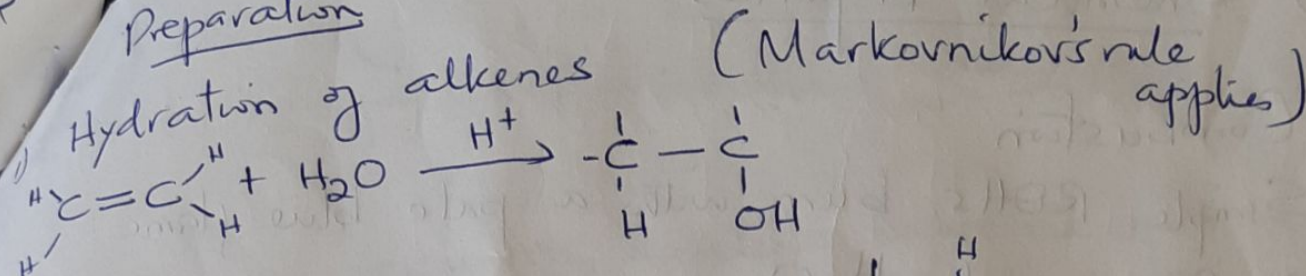 Preparation
1) Hydration of alkenes (Markovnikov's rule applies)
H H
C=C + H2O H+ -C-C-
H H H OH
H